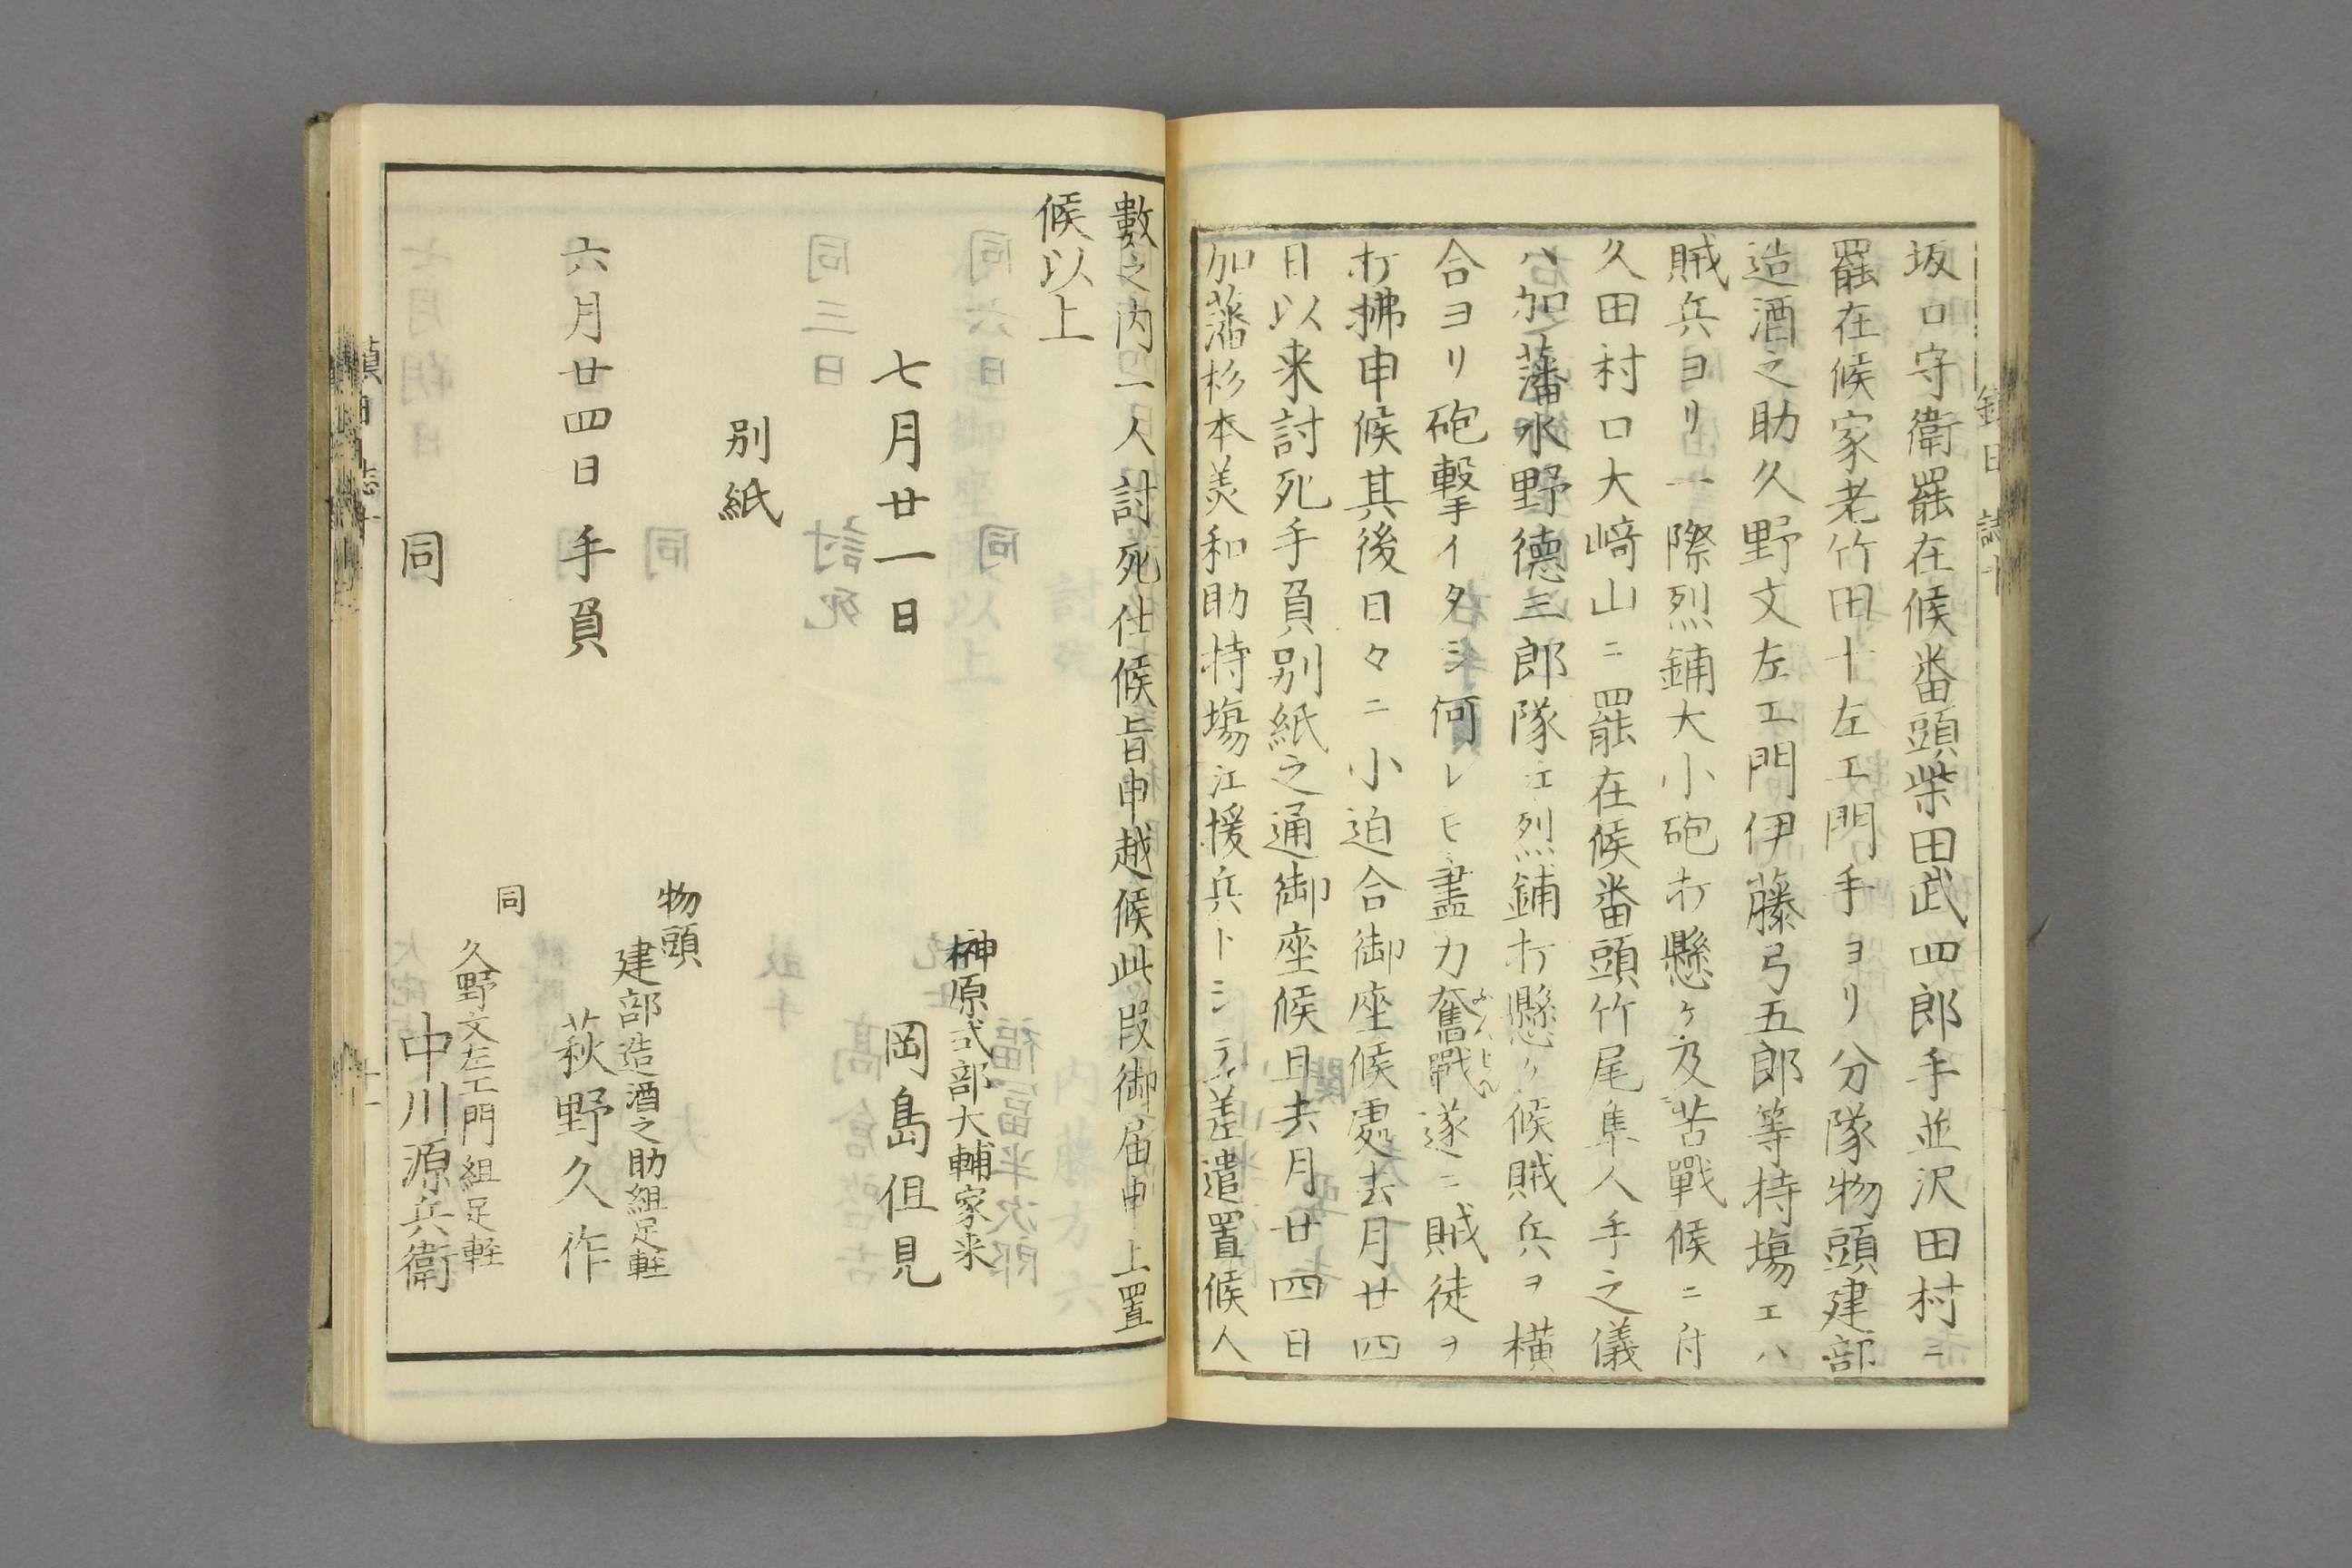 坂口守衛罷在候畨頭柴田武四郎手並沢田村ニ
罷在候家老竹田十左エ門手ヨリ分隊物頭建部
造酒之助久野文左エ門伊藤弓五郎等持塲エハ
賊兵ヨリ一際烈鋪大小砲打懸ケ及苦戰候ニ付
久田村口大﨑山ニ罷在候畨頭竹尾隼人手之儀
ハ加藩水野德三郎隊江烈鋪打懸ケ候賊兵ヲ橫
合ヨリ砲撃イタシ何レモ盡力奮戰遂ニ賊徒ヲ
打拂申候其後日々ニ小迫合御座候處去月廿四
日以来討死手負别紙之通御座候且去月廿四日
加藩杉本美和助持塲江援兵トシテ差遣置候人
數之内一人討死仕候旨申越候此段御届申上置
候以上
七月廿一日
榊原式部大輔家来
岡島但見
别紙
物頭
建部造酒之助組足軽
六月廿四日手負
萩野久作
同
久野文左エ門組足軽
同
中川源兵衛